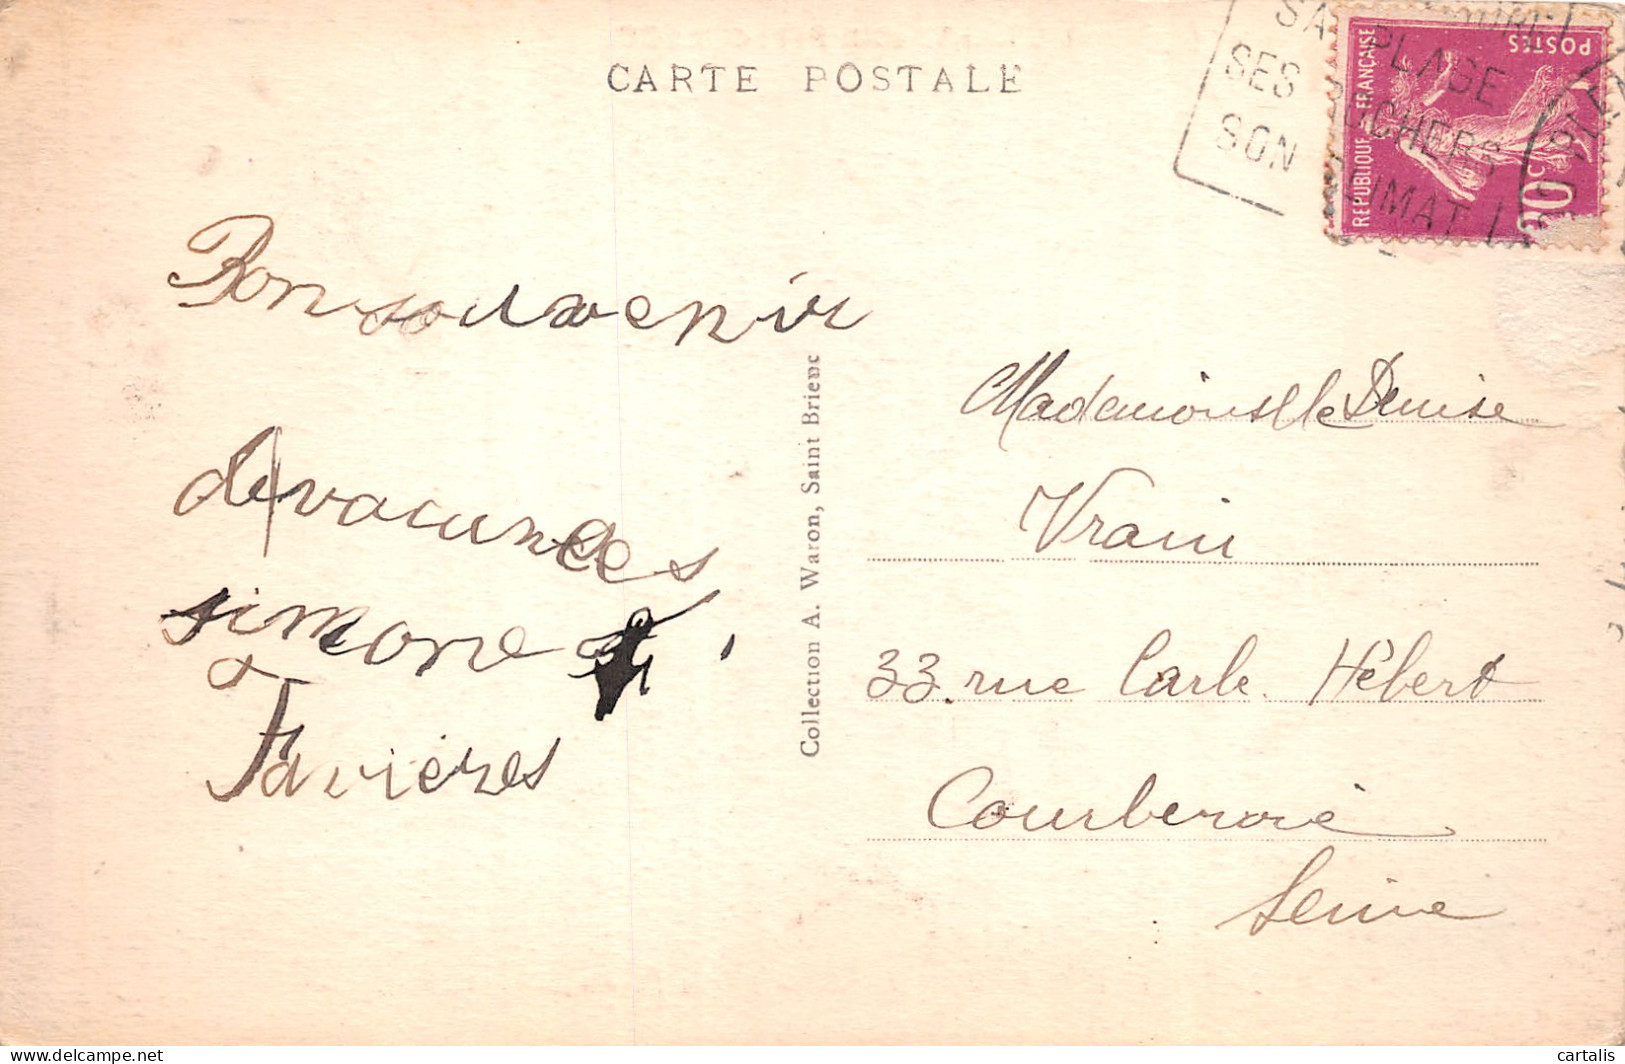 CARTE POSTALE
SA PLAGE
SES ROCHERS
SON CLIMAT
REPUBLIQUE FRANÇAISE
POSTES
Bon souvenir
de vacances
simone
Favières
Collection A. Waron, Saint Brieuc
Mademoiselle Denise
Vrain
33 rue Carle Hébert
Courbevoie
Seine
delcampe.net
cartalis